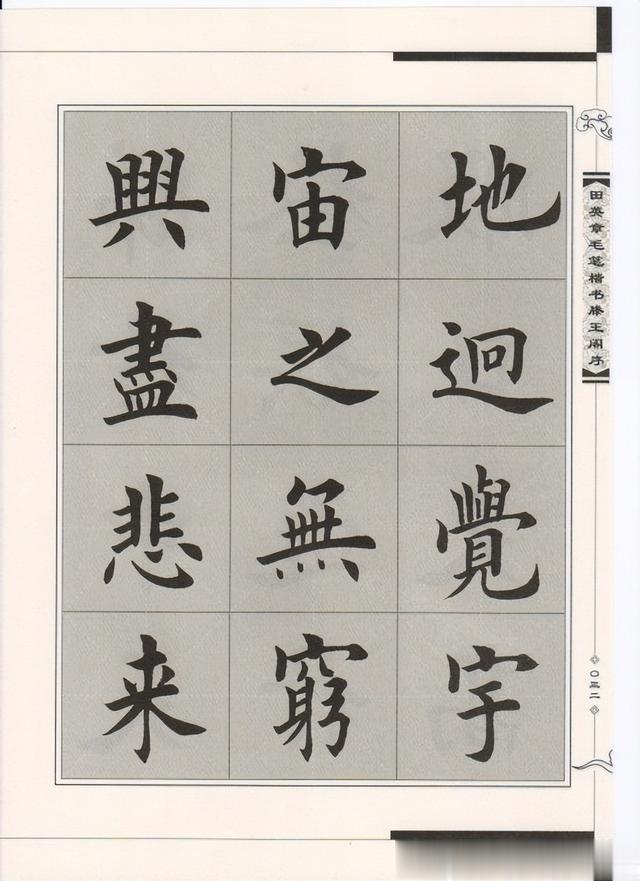 地迥覺宇
宙之無窮
興盡悲来
田英章毛笔楷书滕王阁序
〇三二